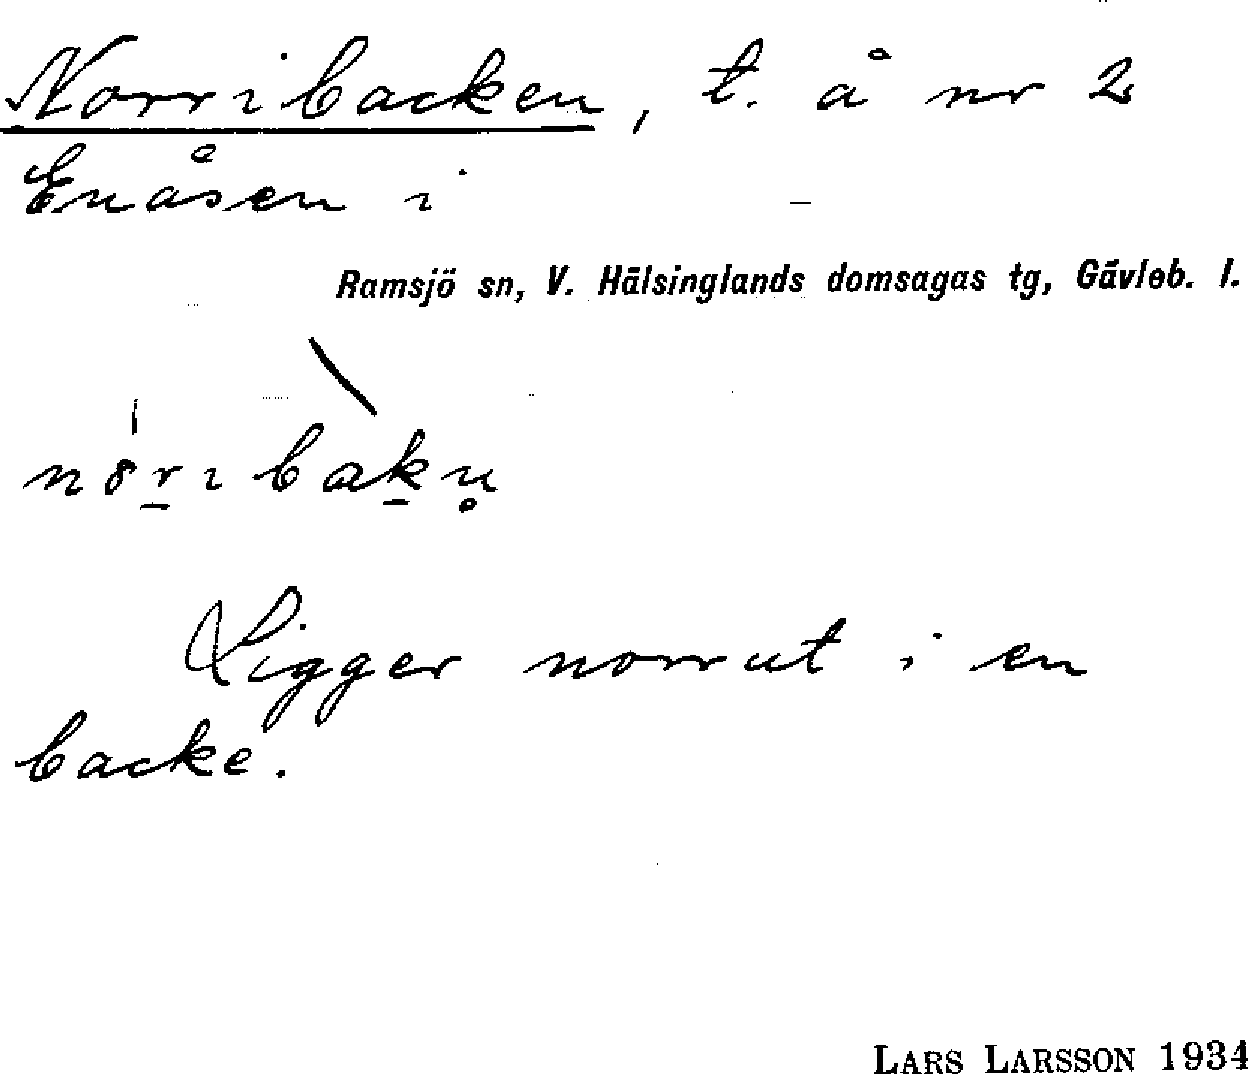 Norribacken, t. å nr 2
Enåsen i
Ramsjö sn, V. Hälsinglands domsagas tg, Gävleb. l.
Ligger norrut i en
backe.
LARS LARSSON 1934